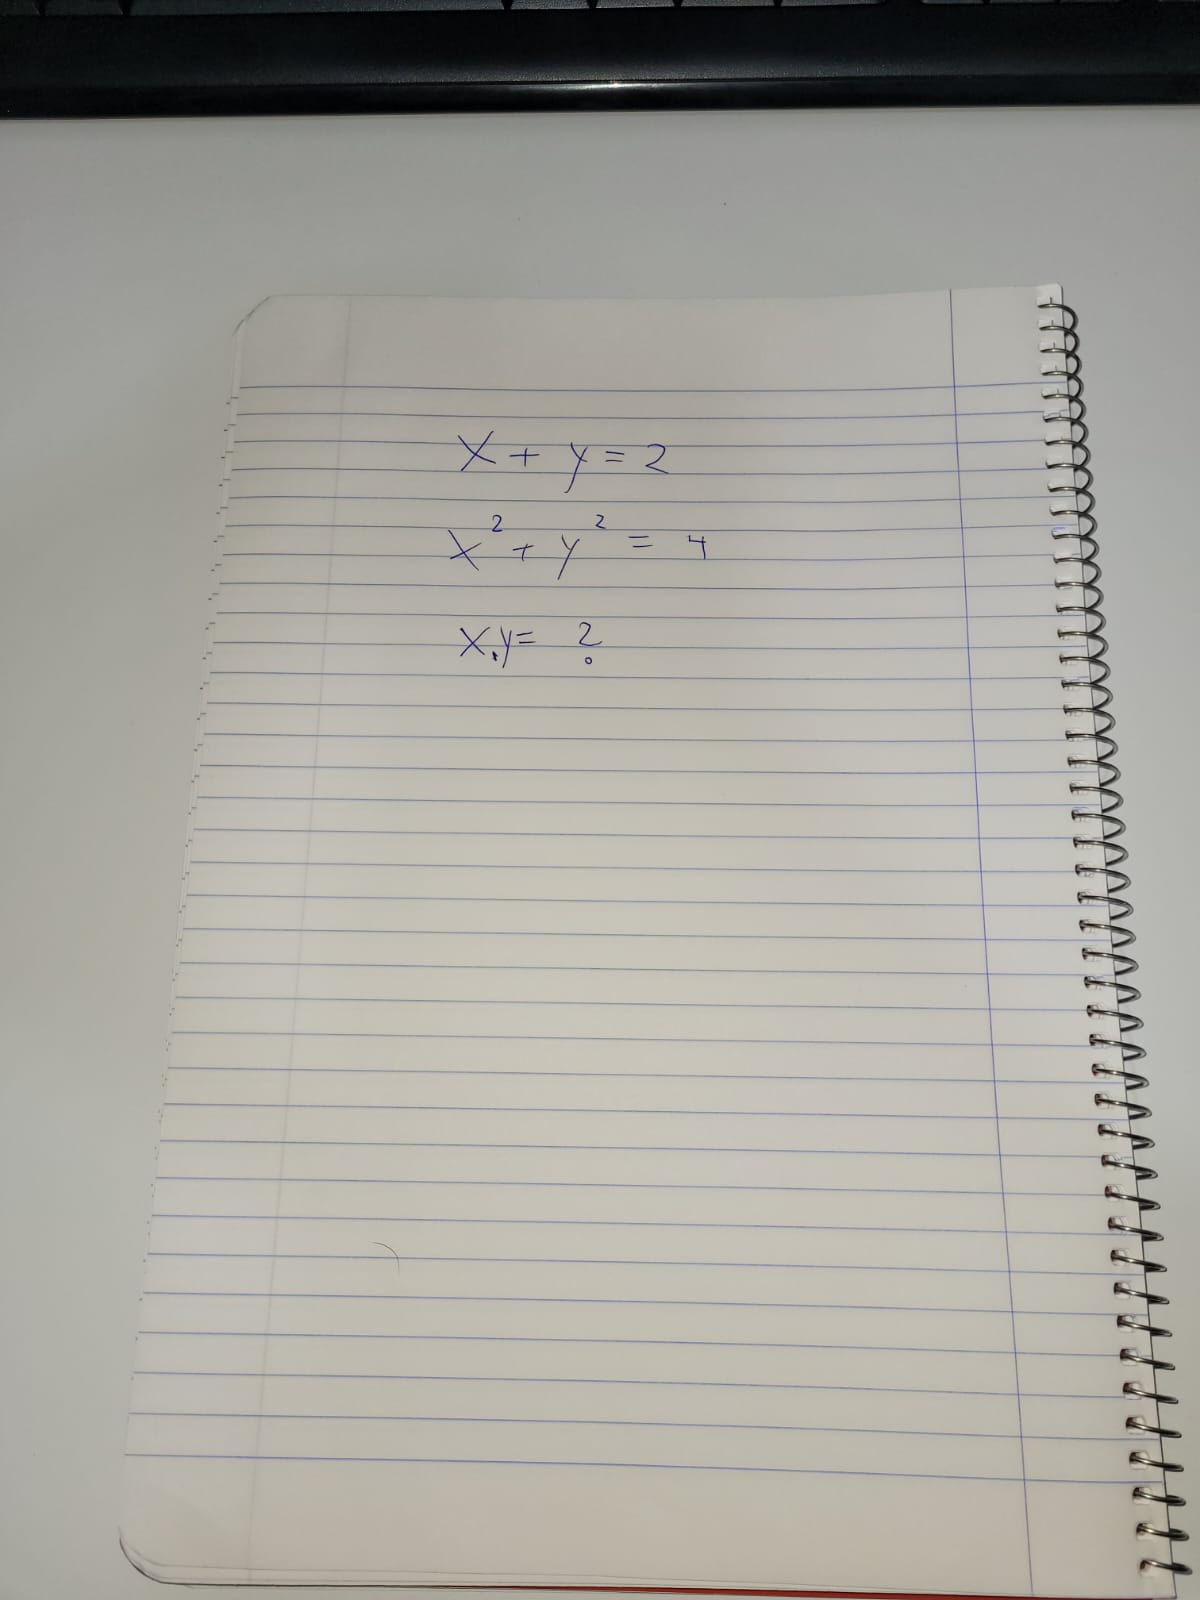 x + y = 2
x² + y² = 4
x.y = ?